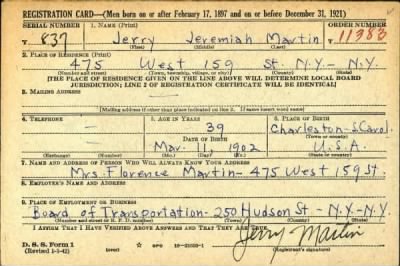 REGISTRATION CARD—(Men born on or after February 17, 1897 and on or before December 31, 1921)
SERIAL NUMBER 1. NAME (Print) ORDER NUMBER
T 837 Jerry Jeremiah Martin 11383
(First) (Middle) (Last)
2. PLACE OF RESIDENCE (Print)
475 West 159 St. N.Y.-N.Y.
(Number and street) (Town, township, village, or city) (County) (State)
[THE PLACE OF RESIDENCE GIVEN ON THE LINE ABOVE WILL DETERMINE LOCAL BOARD
JURISDICTION; LINE 2 OF REGISTRATION CERTIFICATE WILL BE IDENTICAL]
3. MAILING ADDRESS
[Mailing address if other than place indicated on line 2. If same insert word same]
4. TELEPHONE 5. AGE IN YEARS 6. PLACE OF BIRTH
— 39 Charleston-S.Carol.
DATE OF BIRTH (Town or county)
— Mar. 11, 1902 U.S.A.
(Exchange) (Number) (Mo.) (Day) (Yr.) (State or country)
7. NAME AND ADDRESS OF PERSON WHO WILL ALWAYS KNOW YOUR ADDRESS
Mrs. Florence Martin-475 West 159 St.
8. EMPLOYER'S NAME AND ADDRESS
9. PLACE OF EMPLOYMENT OR BUSINESS
Board of Transportation-250 Hudson St-N.Y.-N.Y.
(Number and street or R. F. D. number) (Town) (County) (State)
I AFFIRM THAT I HAVE VERIFIED ABOVE ANSWERS AND THAT THEY ARE TRUE.
D. S. S. Form 1
(Revised 1-1-42) (over) Jerry Martin
(Registrant's signature)